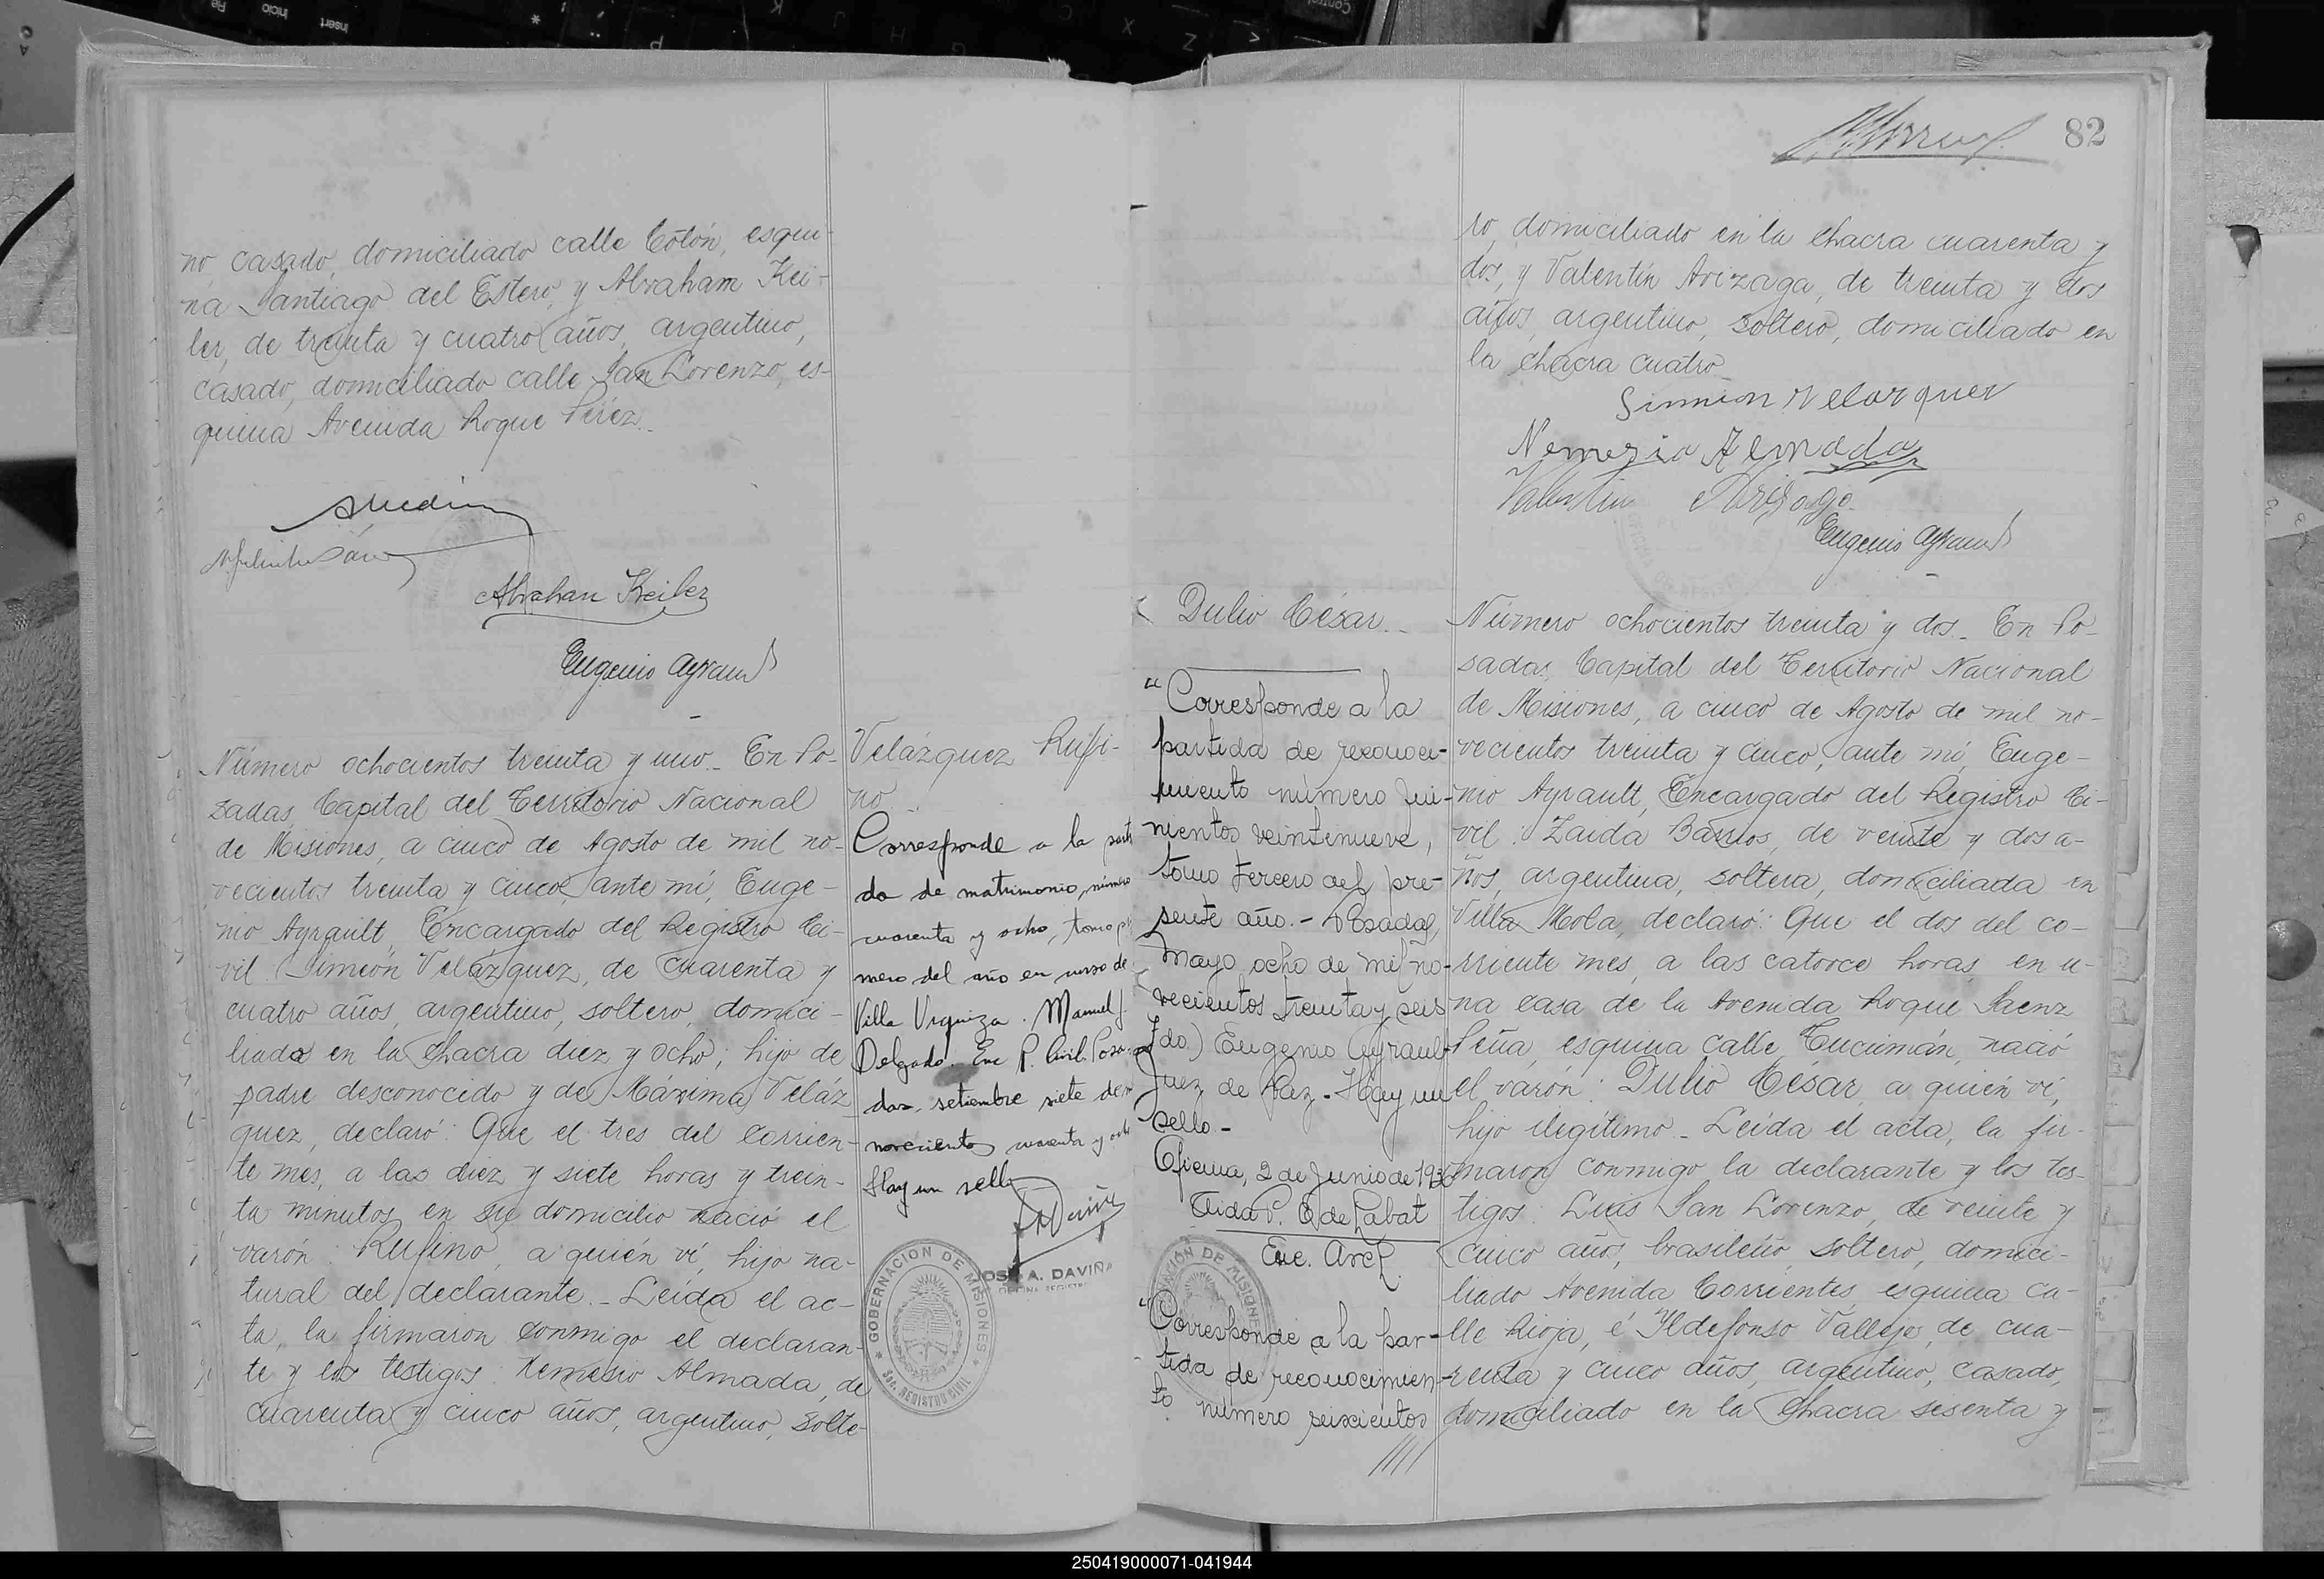 no casado, domiciliado calle Colón, esqui-
na Santiago del Estero, y Abraham Kei-
ler, de treinta y cuatro años, argentino,
casado, domiciliado calle San Lorenzo, es-
quina Avenida Roque Pérez.
Abraham Keiler
Eugenio Ayrault
Número ochocientos treinta y uno. En Po-
sadas, Capital del Territorio Nacional
de Misiones, a cinco de Agosto de mil no-
vecientos treinta y cinco, ante mí, Euge-
nio Ayrault, Encargado del Registro Ci-
vil. Simeón Velázquez, de cuarenta y
cuatro años, argentino, soltero, domici-
liado en la Chacra diez y ocho; hijo de
padre desconocido y de Máxima Veláz
quez, declaró: Que el tres del corrien-
te mes, a las diez y siete horas y trein-
ta minutos, en su domicilio nació el
varón: Rufino, a quién ví, hijo na-
tural del declarante.- Leída el ac-
ta, la firmaron conmigo el declaran-
te y los testigos: Nemesio Almada, de
cuarenta y cinco años, argentino, solte-
Velázquez Rufi-
no.
Corresponde a la parti
da de matrimonio, número
cuarenta y ocho, tomo
mero del año en curso de
Villa Urquiza. Manuel J.
Delgado. Enc R. Civil. Posa-
das, setiembre siete de
novecientos cuarenta y ocho
Hay un sello
JOSE A. DAVIÑA
GOBERNACION DE MISIONES
REGISTRO CIVIL
82
ro, domiciliado en la Chacra cuarenta y
dos, y Valentín Arizaga, de treinta y dos
años, argentino, soltero, domiciliado en
la chacra cuatro
Simeon Velazquez
Nemezio Almada
Valentin Arizaga
Eugenio Ayrault
Dulio César.-
"Corresponde a la
partida de reconoci-
miento número qui-
nientos veintinueve,
tomo tercero del pre-
sente año.- Posadas,
Mayo ocho de mil no-
vecientos treinta y seis
fdo.) Eugenio Ayrault
Juez de Paz.- Hay un
sello.-
Oficina, 2 de Junio de 1936
Aida P. E de Labat
Enc. Arch.
"Corresponde a la par-
tida de reconocimien-
to número seiscientos
Número ochocientos treinta y dos.- En Po-
sadas, Capital del Territorio Nacional
de Misiones, a cinco de Agosto de mil no-
vecientos treinta y cinco, ante mí, Euge-
nio Ayrault, Encargado del Registro Ci-
vil: Zaida Barrios, de veinte y dos a-
ños, argentina, soltera, domiciliada en
Villa Mola, declaró: Que el dos del co-
rriente mes, a las catorce horas, en u-
na casa de la Avenida Roque Saenz
Peña, esquina calle Tucumán, nació
el varón: Dulio César, a quién ví,
hijo ilegítimo.- Leída el acta, la fir-
maron conmigo la declarante y los tes-
tigos: Luis San Lorenzo, de veinte y
cinco años, brasileño, soltero, domici-
liado Avenida Corrientes, esquina ca-
lle Rioja, é Yldefonso Vallejo, de cua-
renta y cinco años, argentino, casado,
domiciliado en la Chacra sesenta y
250419000071-041944